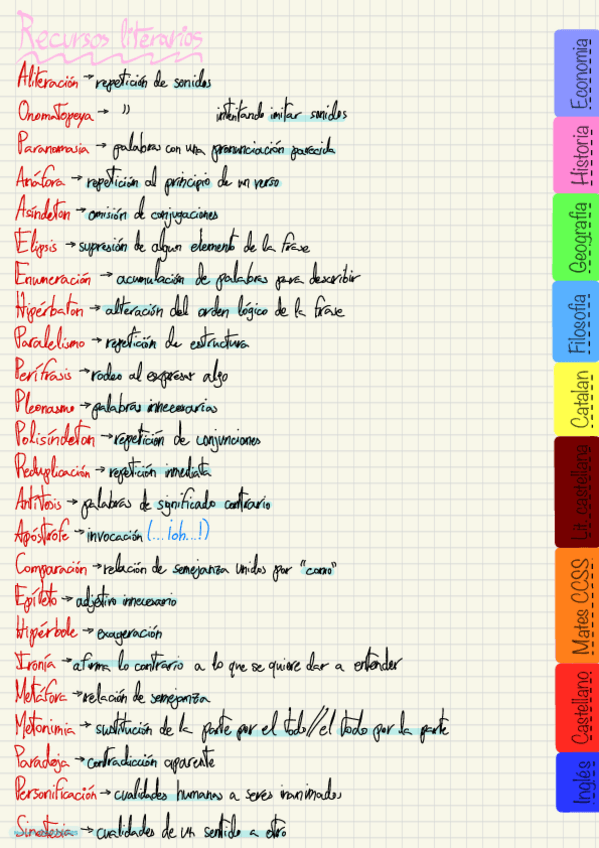 Recursos literarios
Aliteración → repetición de sonidos
Onomatopeya → " intentando imitar sonidos
Paranomasia → palabras con una pronunciación parecida
Anáfora → repetición al principio de un verso
Asíndeton → omisión de conjugaciones
Elipsis → supresión de algun elemento de la frase
Enumeración → acumulación de palabras para describir
Hipérbaton → alteración del orden lógico de la frase
Paralelismo → repetición de estructura
Perífrasis → rodeo al expresar algo
Pleonasmo → palabras innecesarias
Polisíndeton → repetición de conjunciones
Reduplicación → repetición inmediata
Antítesis → palabras de significado contrario
Apóstrofe → invocación (...¡oh...!)
Comparación → relación de semejanza unidos por "como"
Epíteto → adjetivo innecesario
Hipérbole → exageración
Ironía → afirma lo contrario a lo que se quiere dar a entender
Metáfora → relación de semejanza
Metonimia → sustitución de la parte por el todo//el todo por la parte
Paradoja → contradicción aparente
Personificación → cualidades humanas a seres inanimados
Sinestesia → cualidades de un sentido a otro
Economia
Historia
Geografia
Filosofia
Catalan
Lit. castellana
Mates CCSS
Castellano
Inglés